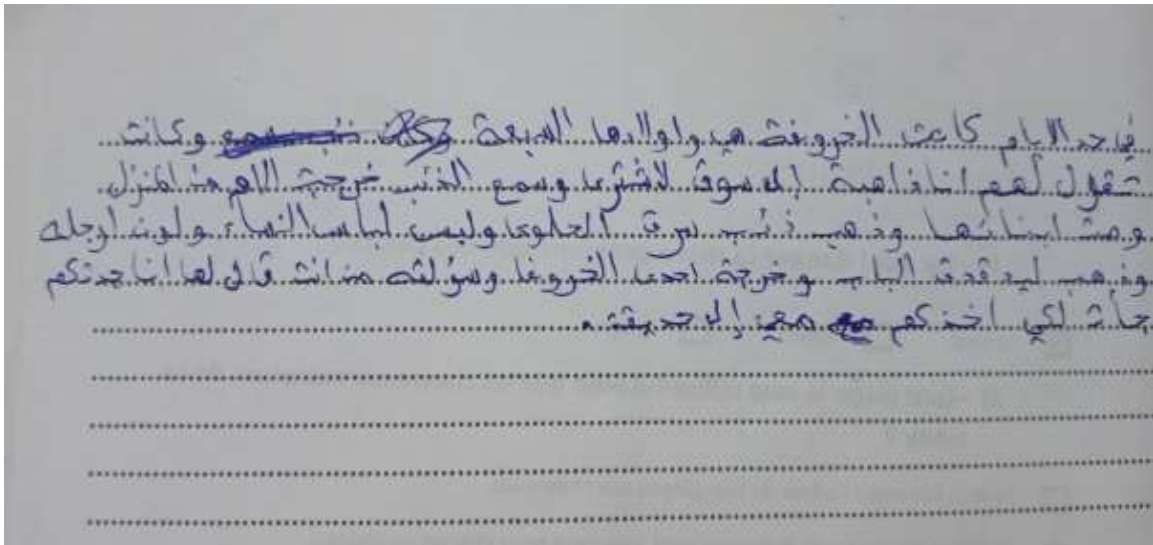 في حد الايام كاعت الخروفة هي واولادها السبعة وكانت
تقول لهم انا ذاهبة إلا سوق لاشتري وسمع الذئب خرجية الام من المنزل
ومث ابنائها وذهب ذئب سرق الحلوى ولبس لباس النساء ولون اوجله
وذهب ليدقدق الباب وخرجة احدى الخروفا وسؤلته من انت قال لها انا جدتكم
جأت لكي اخذكم معي إلا حديقة.